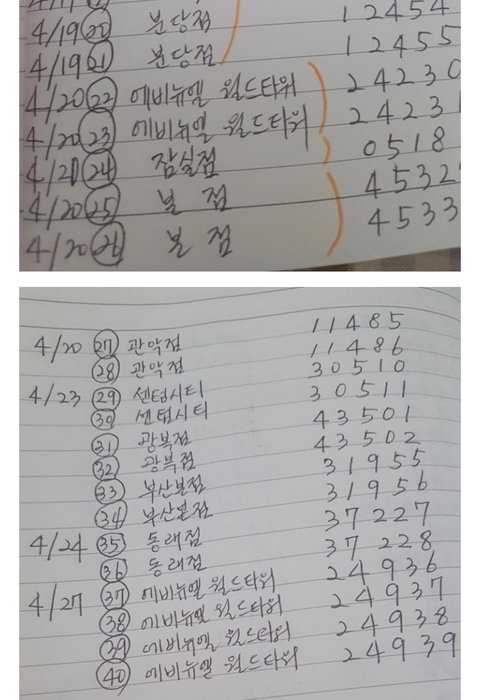 4/19 ⑳ 분당점 12454
4/19 ㉑ 분당점 12455
4/20 ㉒ 에비뉴엘 월드타워 24230
4/20 ㉓ 에비뉴엘 월드타워 24231
4/20 ㉔ 잠실점 0518
4/20 ㉕ 본 점 4532
4/20 ㉖ 본 점 4533
4/20 ㉗ 관악점 11485
㉘ 관악점 11486
4/23 ㉙ 센텀시티 30510
㉚ 센텀시티 30511
㉛ 광복점 43501
㉜ 광복점 43502
㉝ 부산본점 31955
㉞ 부산본점 31956
4/24 ㉟ 동래점 37227
㊱ 동래점 37228
4/27 ㊲ 에비뉴엘 월드타워 24936
㊳ 에비뉴엘 월드타워 24937
㊴ 에비뉴엘 월드타워 24938
㊵ 에비뉴엘 월드타워 24939